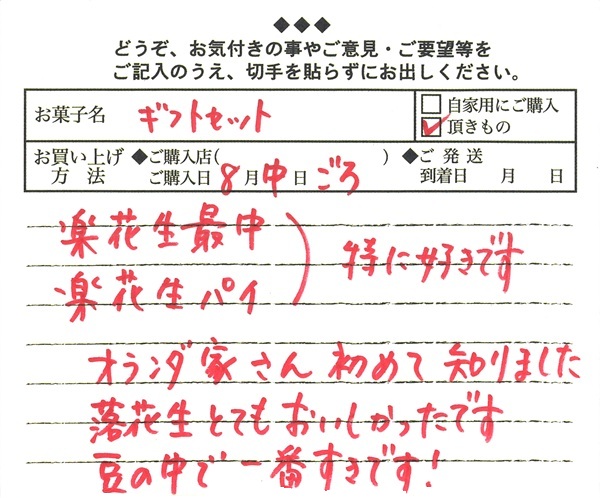 ◆◆◆
どうぞ、お気付きの事やご意見・ご要望等を
ご記入のうえ、切手を貼らずにお出しください。
お菓子名 ギフトセット □自家用にご購入
☑頂きもの
お買い上げ方法 ◆ご購入店( ) ◆ご発送
ご購入日 8月中日ごろ 到着日 月 日
楽花生最中
楽花生パイ
特に好きです
オランダ家さん初めて知りました
落花生とてもおいしかったです
豆の中で一番すきです!